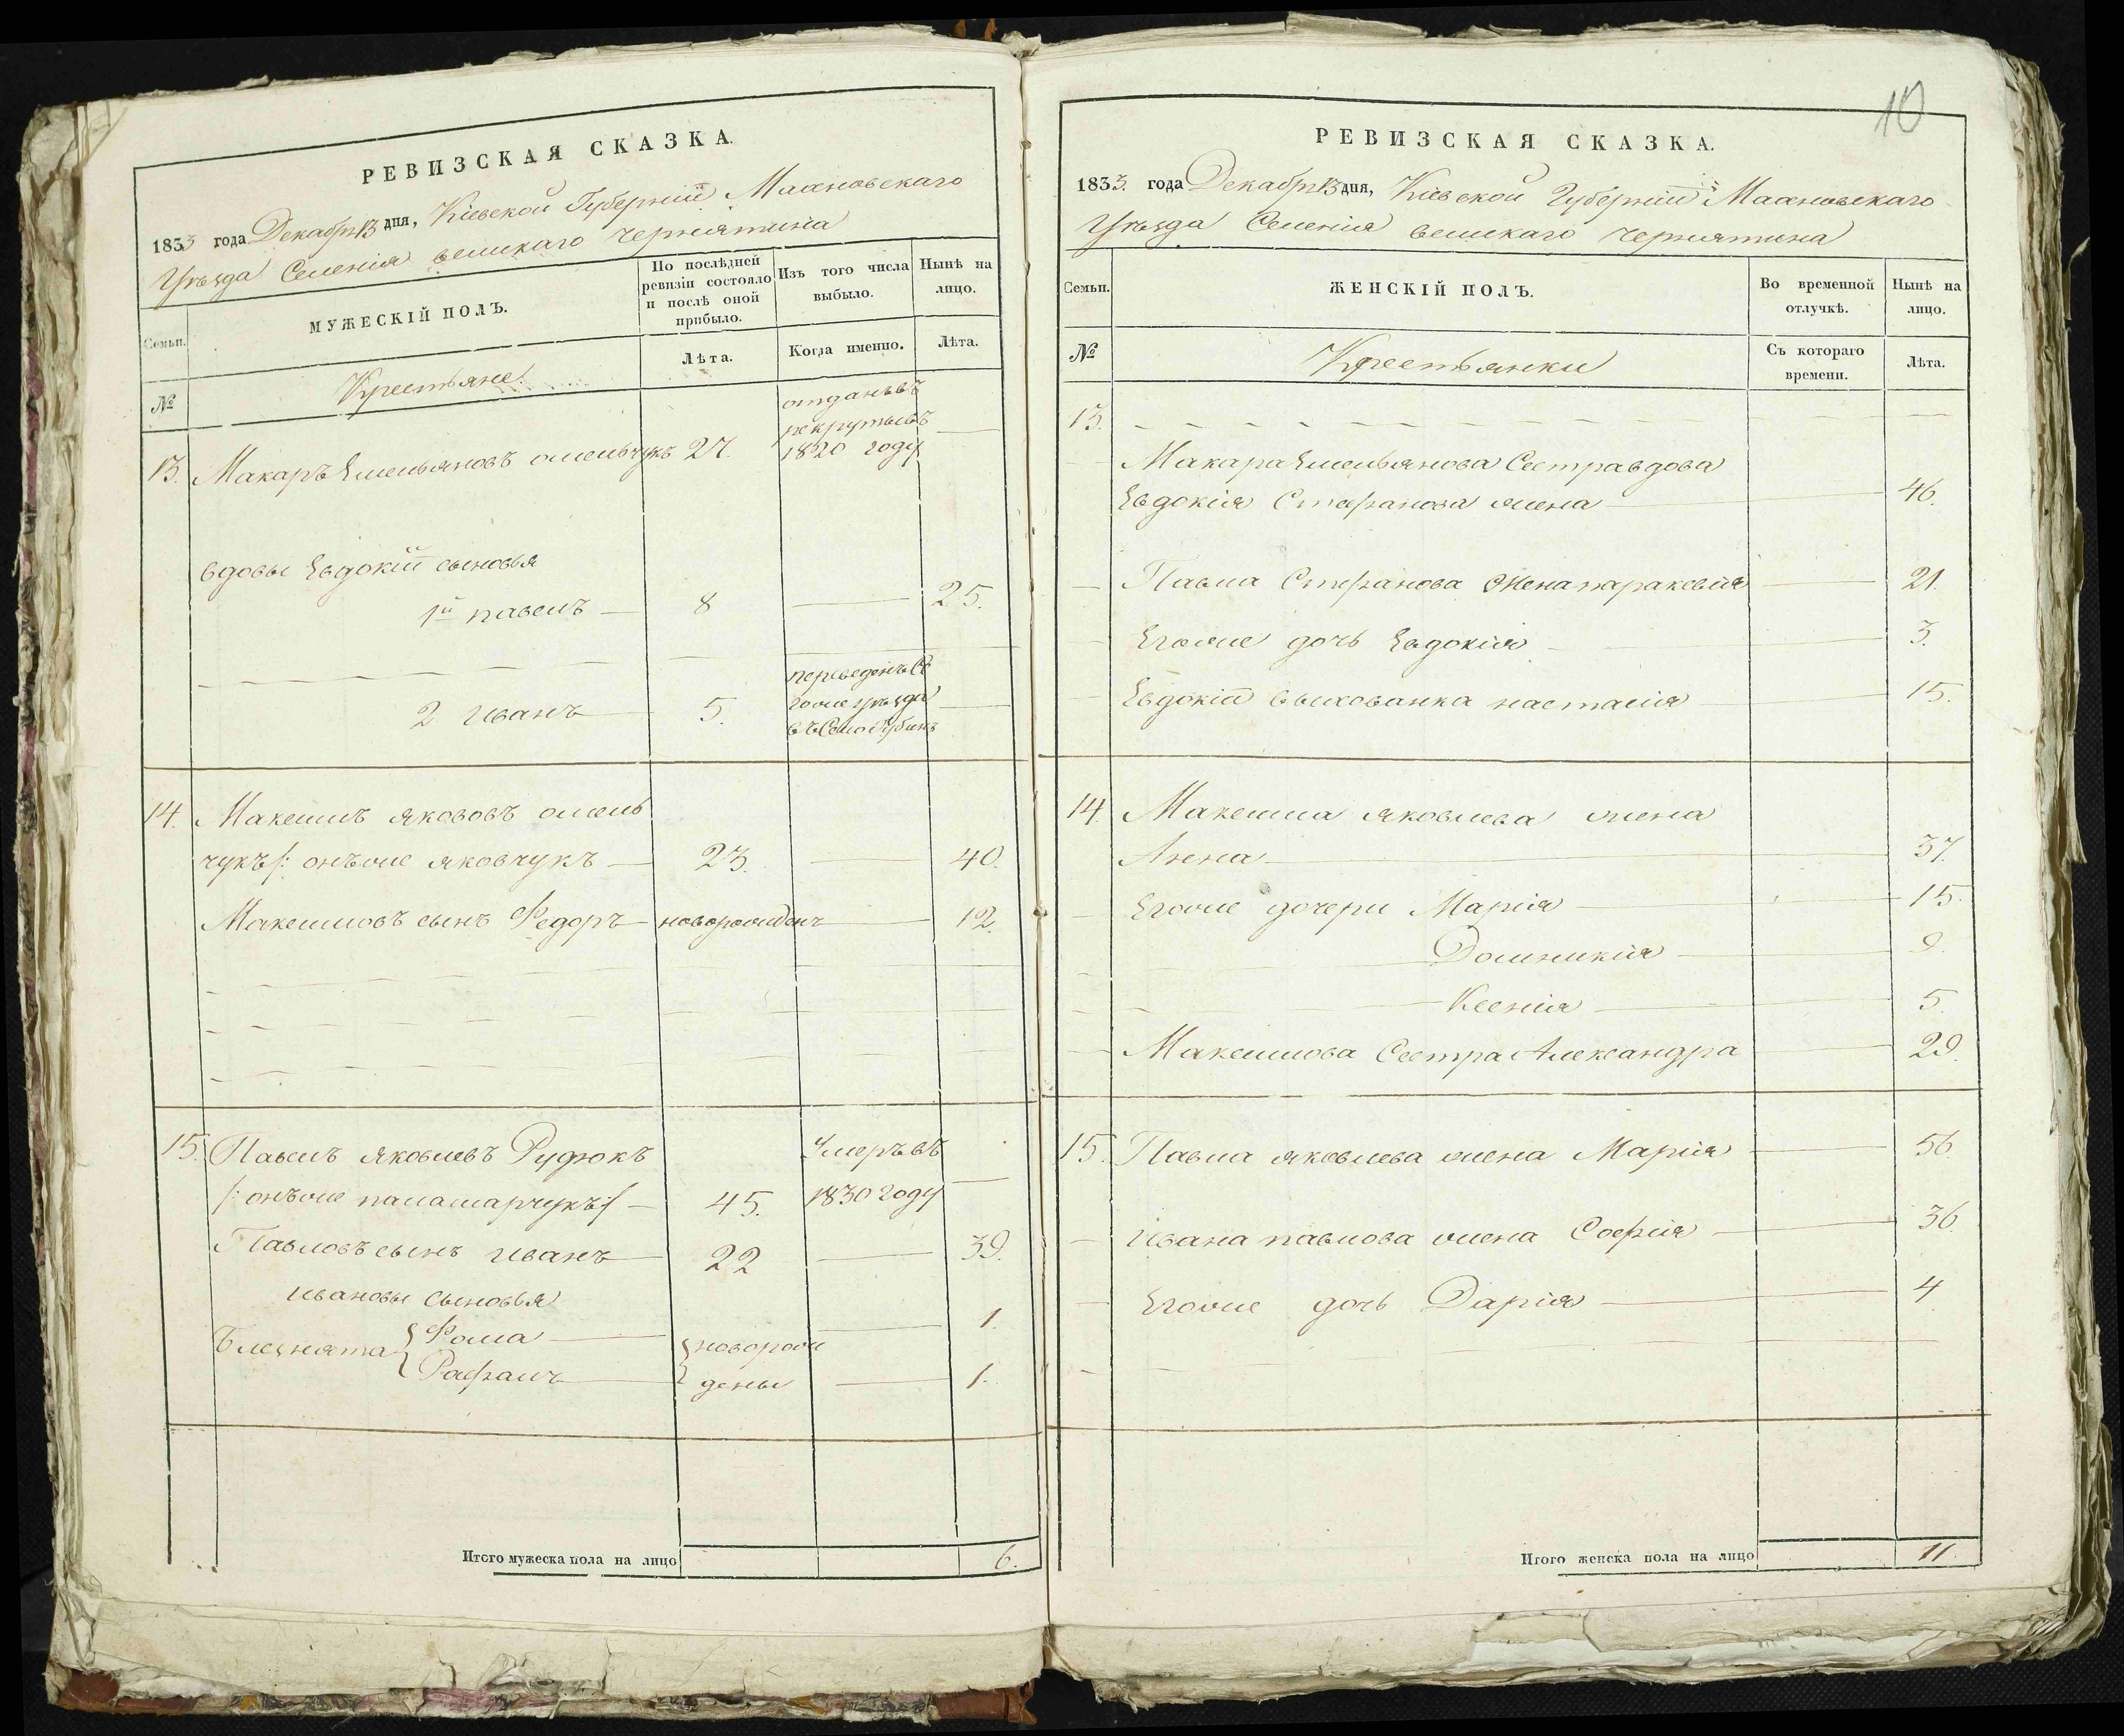 РЕВИЗСКАЯ СКАЗКА.
1833 года Декабря 13 дня, Кіевской Губерніи Махновскаго
Уѣзда Селенія великаго чернятина
Семьи.
МУЖЕСКІЙ ПОЛЪ.
По послѣдней ревизіи состояло и послѣ оной прибыло.
Изъ того числа выбыло.
Нынѣ на лицо.
№
Крестьяне
Лѣта.
Когда именно.
Лѣта.
13. Макаръ Емельяновъ омельчукъ 27. отданъ въ рекруты въ 1820 году —
вдовы Евдокіи сыновья
1й павелъ — 8 — 25.
2 иванъ 5. переведенъ Се
гоже уѣзда —
въ Село
14. Максимъ якововъ омель
чукъ /: онъже яковчукъ — 23. — 40.
Максимовъ сынъ Федоръ — новорожденъ — 12.
15. Павелъ яковлевъ Рудюкъ Умеръ въ
/: онъже паламарчукъ :/ — 45. 1830 году —
Павловъ сынъ иванъ 22 — 39.
ивановы сыновья
Близнята { Фома — { новорож — 1.
Рафаилъ — дены — 1.
Итого мужеска пола на лицо 6.
10
РЕВИЗСКАЯ СКАЗКА.
1833. года Декабря 13 дня, Кіевской Губерніи Махновскаго
Уѣзда Селенія великаго чернятина
Семьи.
ЖЕНСКІЙ ПОЛЪ.
Во временной отлучкѣ.
Нынѣ на лицо.
№
Крестьянки
Съ котораго времени.
Лѣта.
13. — — — — —
Макара Емельянова Сестра вдова
Евдокія Стефанова жена — 46.
— Павла Стефанова Жена параскевія — 21.
— Егоже дочь Евдокія — 3.
— Евдокіи выхованка настасія — 15.
14. Максима яковлева жена
Анна — 37.
— Егоже дочери Марія — 15.
— Домникія — 9.
— Ксенія — 5.
— Максимова Сестра Александра — 29.
15. Павла яковлева жена Марія — 56.
— ивана павлова жена Софія — 36.
— Егоже дочь Дарія — 4
Итого женска пола на лицо 11.